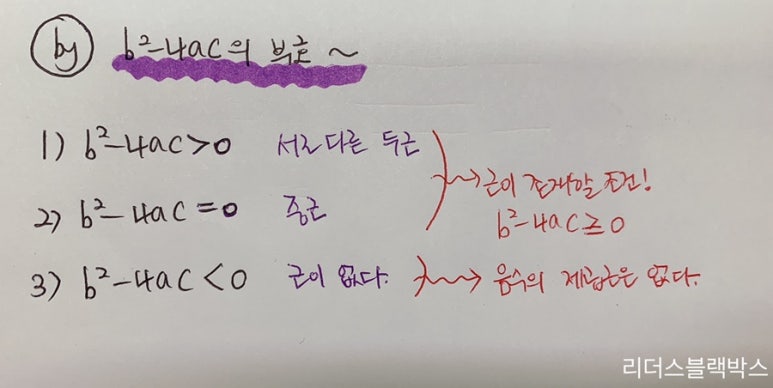 by b²-4ac의 부호 ~
1) b²-4ac>0 서로 다른 두근
2) b²-4ac=0 중근
근이 존재할 조건!
b²-4ac≥0
3) b²-4ac<0 근이 없다. 음수의 제곱근은 없다.
리더스블랙박스